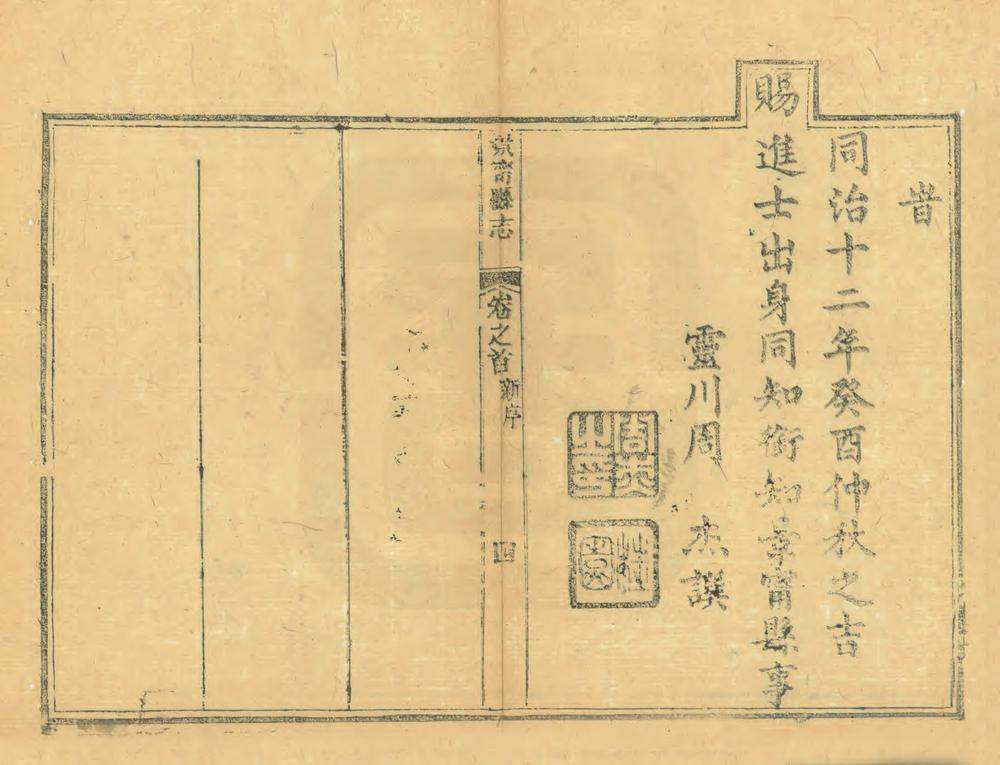 旹
同治十二年癸酉仲秋之吉
賜進士出身同知銜知景甯縣事
靈川周 杰譔
景甯縣志
卷之首
新序
四